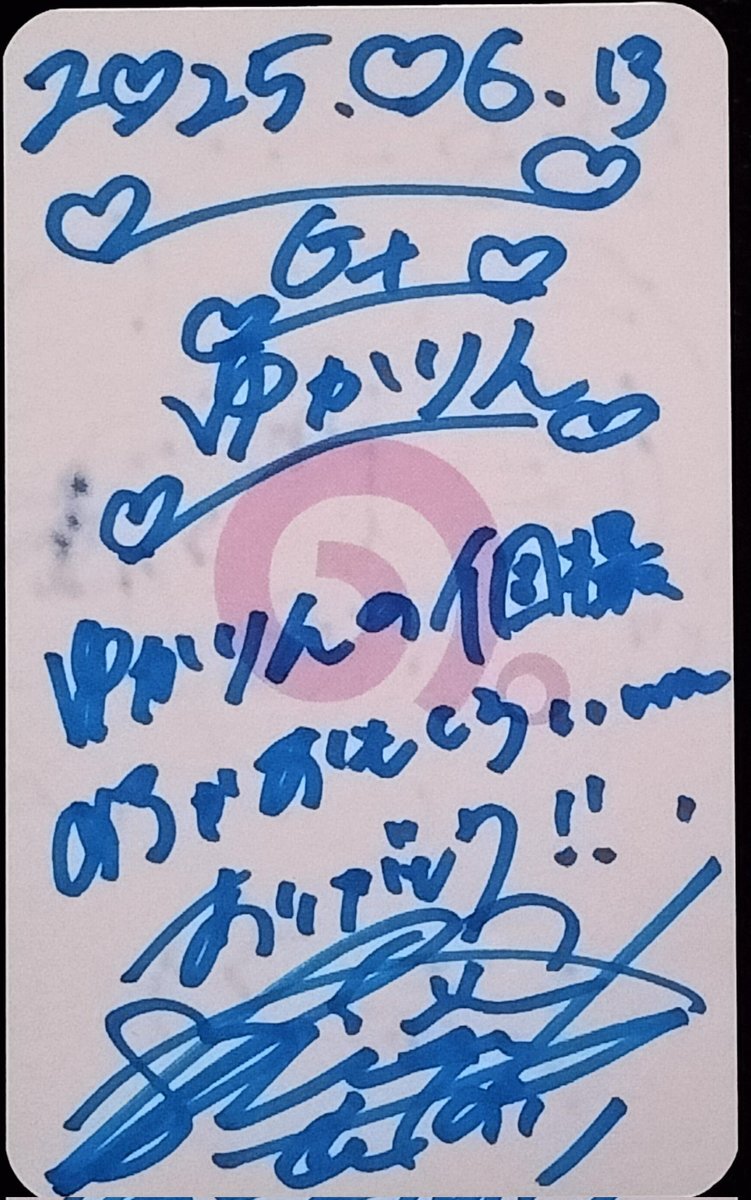 2025.06.13
Gt
ゆかりん
ゆかりんの個様
のうがおもしろい〰
ありがとう!!